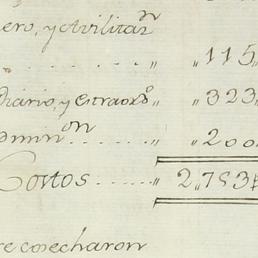 ero, y Avilitaz.ⁿ
. . . . . . „ „ 115„
Diario, y extraorz.º „ „ 323„
dmin.ᵒⁿ . . . . . . „ „ 200
Costos . . . . . „ 2„753
re cosecharon